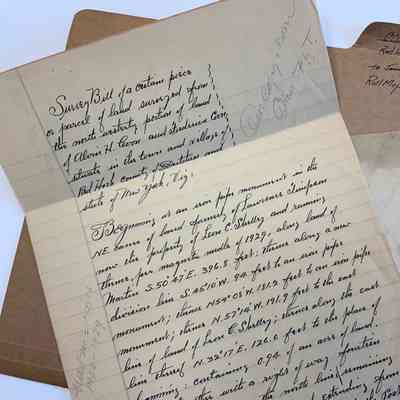 Survey Bill of a certain piece
or parcel of land surveyed from
the north westerly portion of land
of Alvin H. Coon and Frederica Coon
situate in the town and village
Red Hook county of Dutchess and
state of New York, Viz;
Beginning at an iron pipe monument in the
NE corner of land formerly of Lawrence Timpson
now the property of Leon C. Shelley and running
thence, per magnetic needle of 1929, along land of
Martin S.50°47'E. 396.8 feet; thence along a new
division line S.45°10'W. 94 feet to an iron pipe
monument; thence N54°03'W. 181.9 feet to an iron pipe
monument; thence N.57°14'W. 191.9 feet to the east
line of land of Leon C Shelley; thence along the east
line thereof N.32°17'E. 126.0 feet to the place of
beginning: containing 0.94 of an acre of land.
with a right of way fourteen
the north line remaining
extending from
Red
to